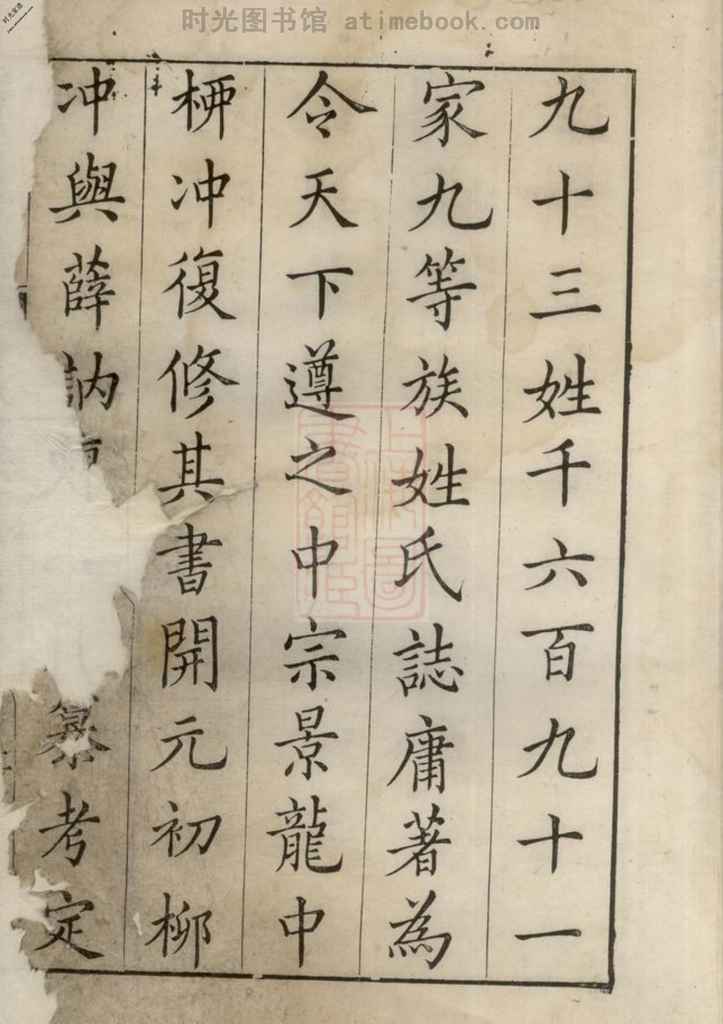 时光图书馆 atimebook.com
九十三姓千六百九十一
家九等族姓氏誌庸著為
令天下遵之中宗景龍中
桺冲復修其書開元初柳
冲與薛訥纂考定